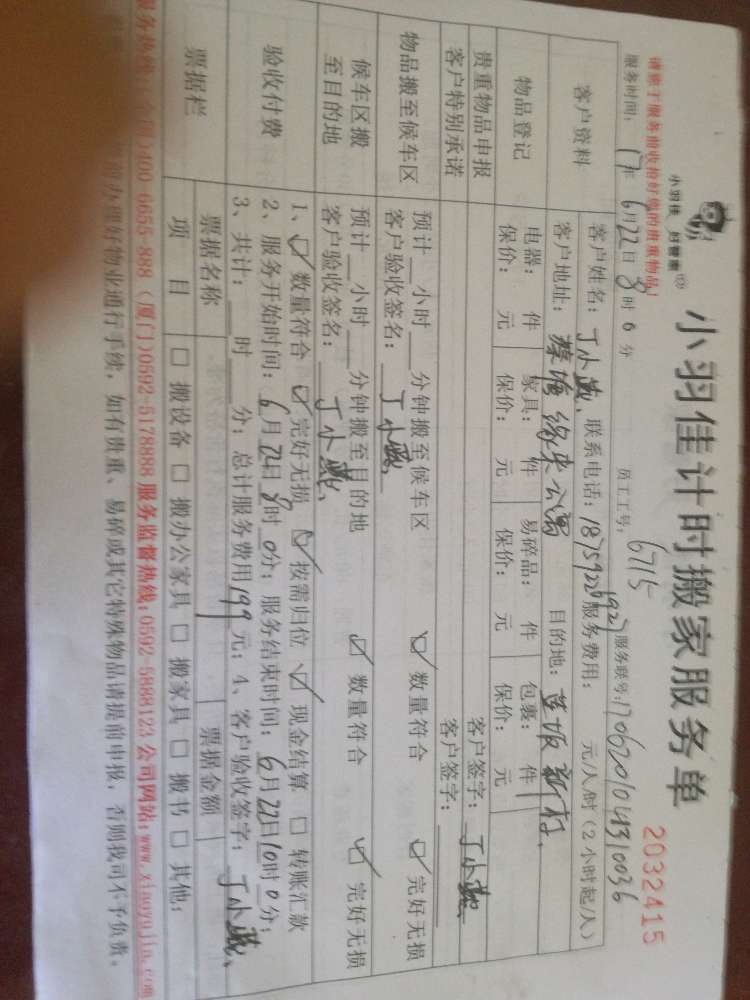 小羽佳 好管家
小羽佳计时搬家服务单
2032415
请您于服务前收拾好您的贵重物品！
员工工号：6715
服务时间：17年6月22日8时0分
服务联号：
客户资料
客户姓名：丁小燕
联系电话：
服务费用： 元/人/时（2小时起/人）
客户地址：蔡塘缘来公寓
目的地：莲坂新村
物品登记
电器： 件 家具： 件 易碎品： 件 包裹： 件
保价： 元 保价： 元 保价： 元 保价： 元
贵重物品申报
客户签字：丁小燕
客户特别承诺
客户签字：
物品搬至候车区
预计 小时 分钟搬至候车区 ☑ 数量符合 ☑ 完好无损
客户验收签名：丁小燕
候车区搬至目的地
预计 小时 分钟搬至目的地 ☑ 数量符合 ☑ 完好无损
客户验收签名：丁小燕
验收付费
1、☑ 数量符合 ☑ 完好无损 ☑ 按需归位 ☑ 现金结算 □ 转账汇款
2、服务开始时间：6月22日8时0分；服务结束时间：6月22日10时0分；
3、共计： 时 分；总计服务费用199元；4、客户验收签字：丁小燕
票据栏
票据名称 票据金额
项 目 □ 搬设备 □ 搬办公家具 □ 搬家具 □ 搬书 □ 其他：
400-6655-888（厦门）0592-5178888 服务监督热线：0592-5888123 公司网站：www.xiaoyujia.com
办理好物业通行手续，如有贵重、易碎或其它特殊物品请提前申报，否则我司不予负责。